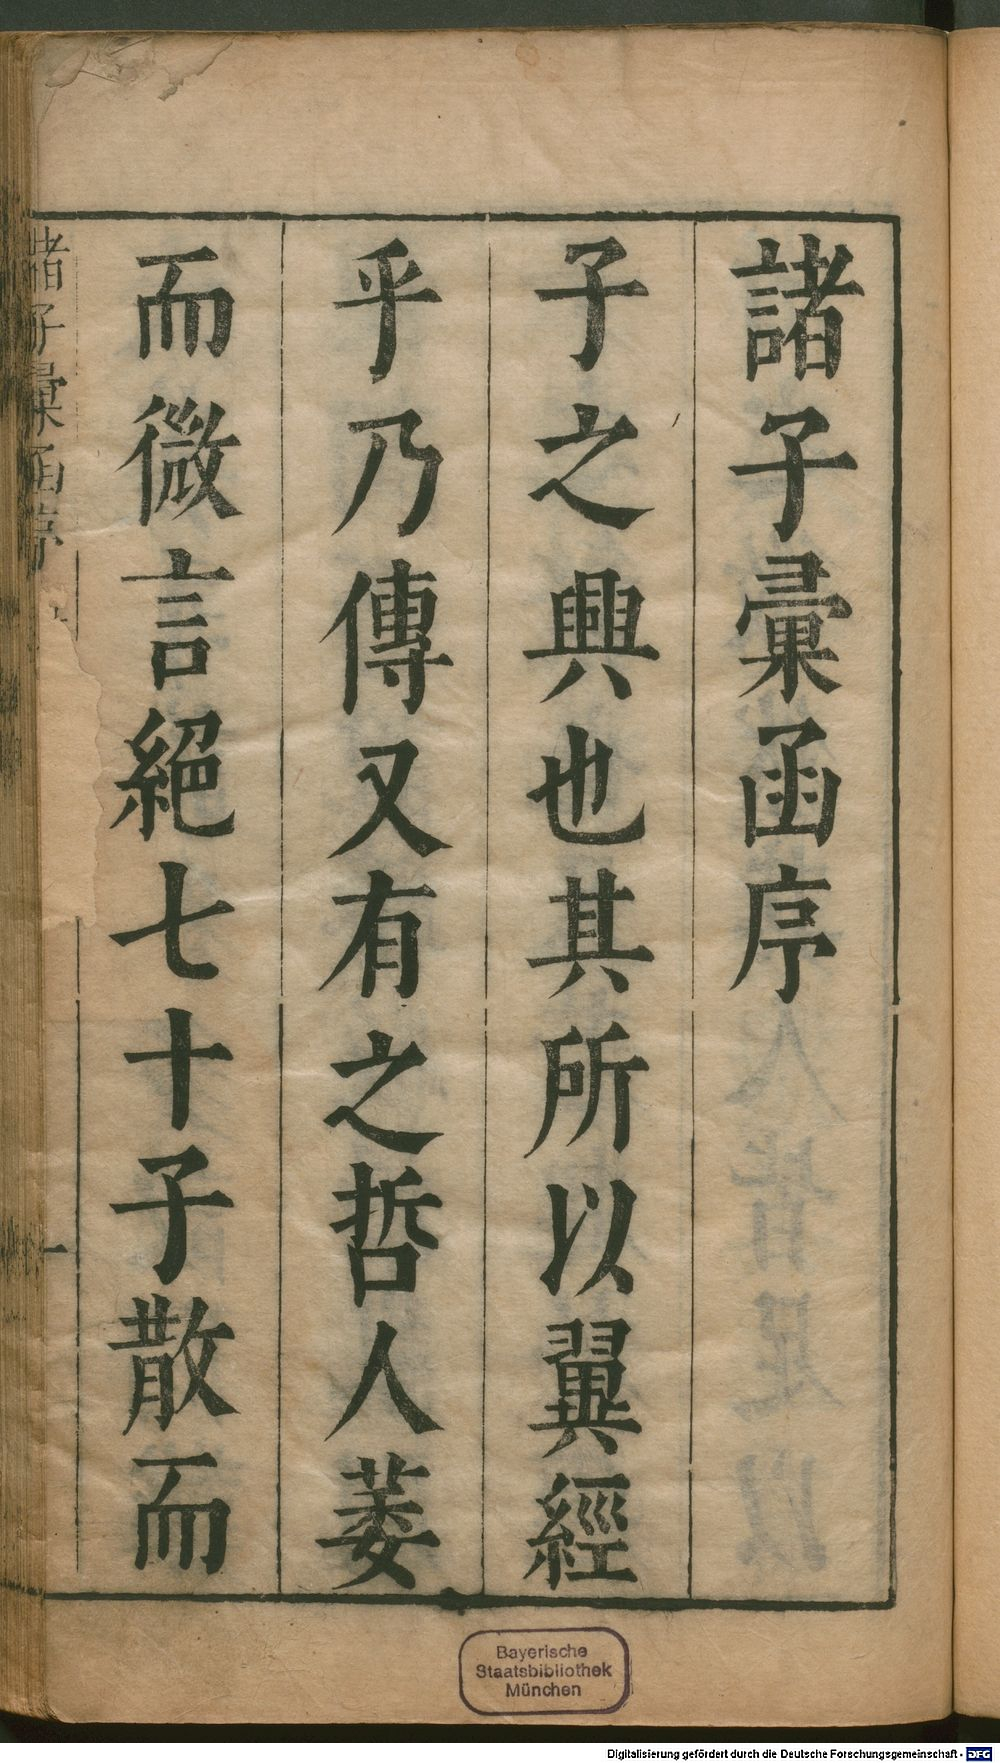 諸子彙函序
子之興也其所以翼經
乎乃傳又有之哲人萎
而微言絕七十子散而
諸子彙函序
一
Bayerische
Staatsbibliothek
München
Digitalisierung gefördert durch die Deutsche Forschungsgemeinschaft - DFG